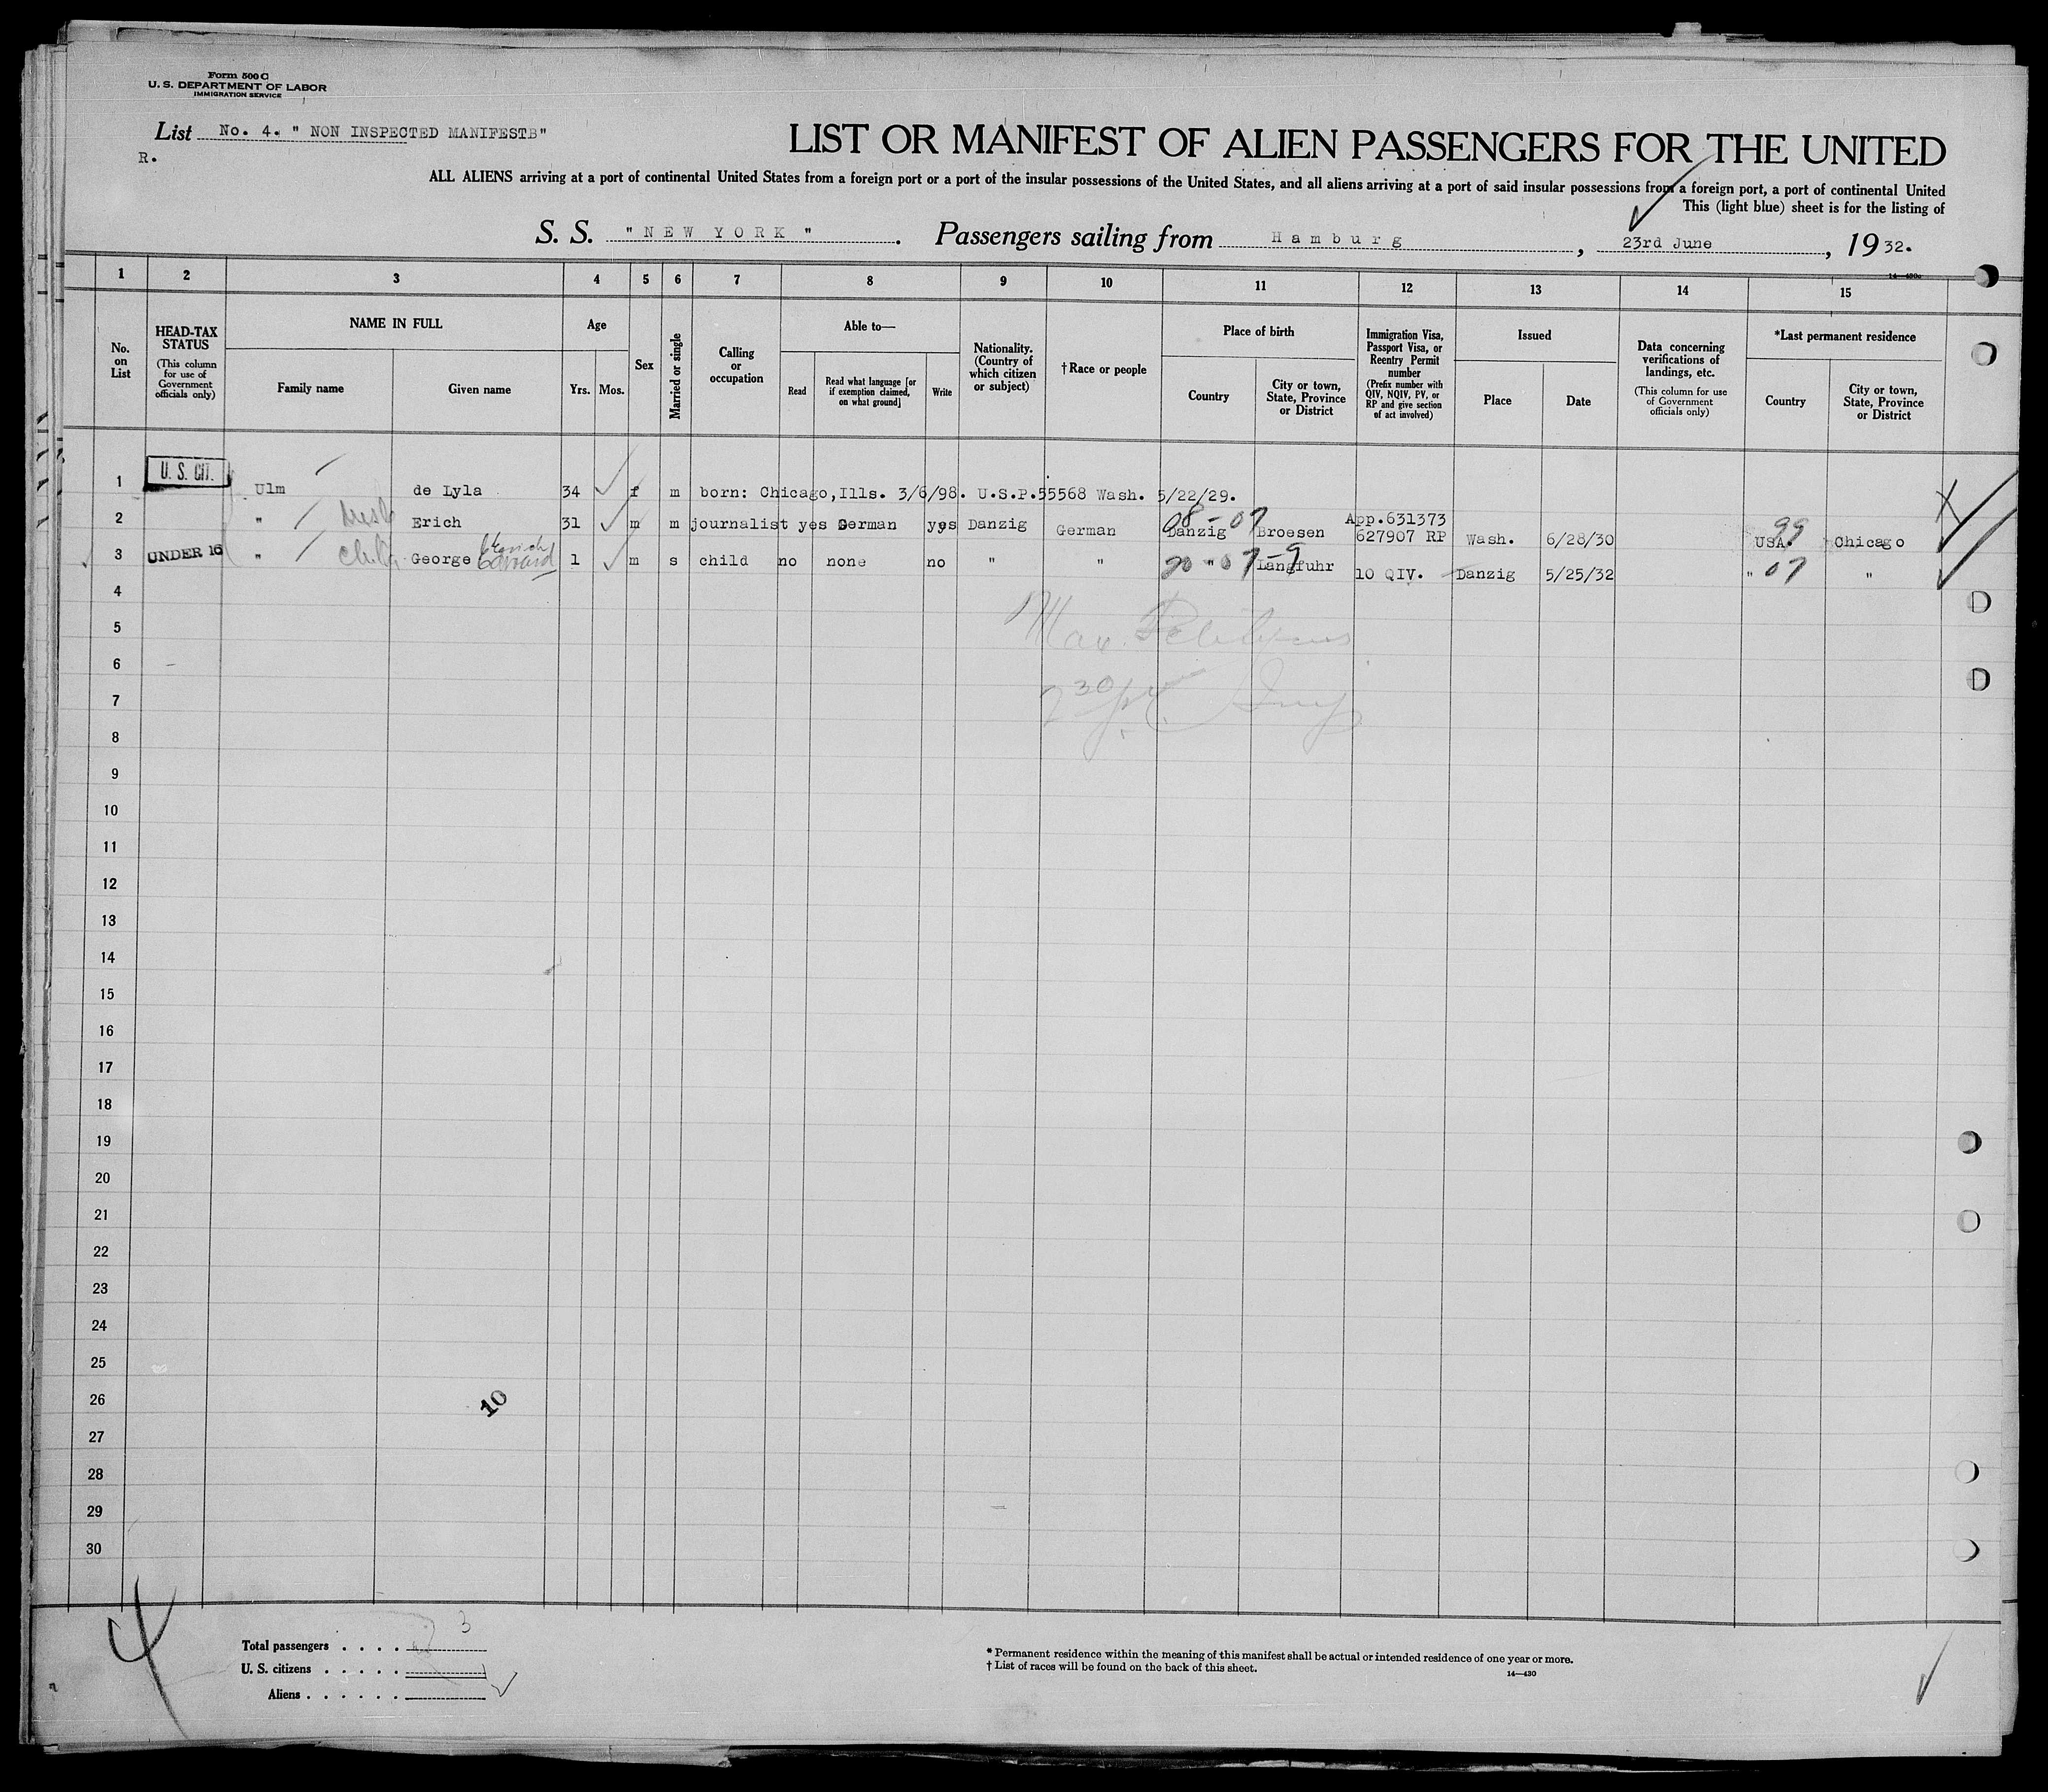 Form 500 C
U. S. DEPARTMENT OF LABOR
IMMIGRATION SERVICE
List No. 4. " NON INSPECTED MANIFESTS"
R.
LIST OR MANIFEST OF ALIEN PASSENGERS FOR THE UNITED
ALL ALIENS arriving at a port of continental United States from a foreign port or a port of the insular possessions of the United States, and all aliens arriving at a port of said insular possessions from a foreign port, a port of continental United
This (light blue) sheet is for the listing of
S. S. " N E W Y O R K " . Passengers sailing from H a m b u r g , 23rd June , 19 32.
14—430c
1 2 3 4 5 6 7 8 9 10 11 12 13 14 15
No. on List
HEAD-TAX STATUS
(This column for use of Government officials only)
NAME IN FULL
Family name
Given name
Age
Yrs. Mos.
Sex
Married or single
Calling or occupation
Able to—
Read
Read what language [or if exemption claimed, on what ground]
Write
Nationality. (Country of which citizen or subject)
† Race or people
Place of birth
Country
City or town, State, Province or District
Immigration Visa, Passport Visa, or Reentry Permit number
(Prefix number with QIV, NQIV, PV, or RP and give section of act involved)
Issued
Place
Date
Data concerning verifications of landings, etc.
(This column for use of Government officials only)
*Last permanent residence
Country
City or town, State, Province or District
1 U. S. CIT. Ulm de Lyla 34 f m born: Chicago,Ills. 3/6/98. U.S.P.55568 Wash. 5/22/29.
2 " Erich 31 m m journalist yes German yes Danzig German 08-07 Danzig Broesen App.631373 627907 RP Wash. 6/28/30 99 USA. Chicago
3 UNDER 16 " child George 1 m s child no none no " " " Langfuhr 10 QIV. Danzig 5/25/32 " 07 "
4
5
6
7
8
9
10
11
12
13
14
15
16
17
18
19
20
21
22
23
24
25
26
27
28
29
30
10
4
Total passengers . . . . 3
U. S. citizens . . . . .
Aliens . . . . . .
* Permanent residence within the meaning of this manifest shall be actual or intended residence of one year or more.
† List of races will be found on the back of this sheet.
14—430